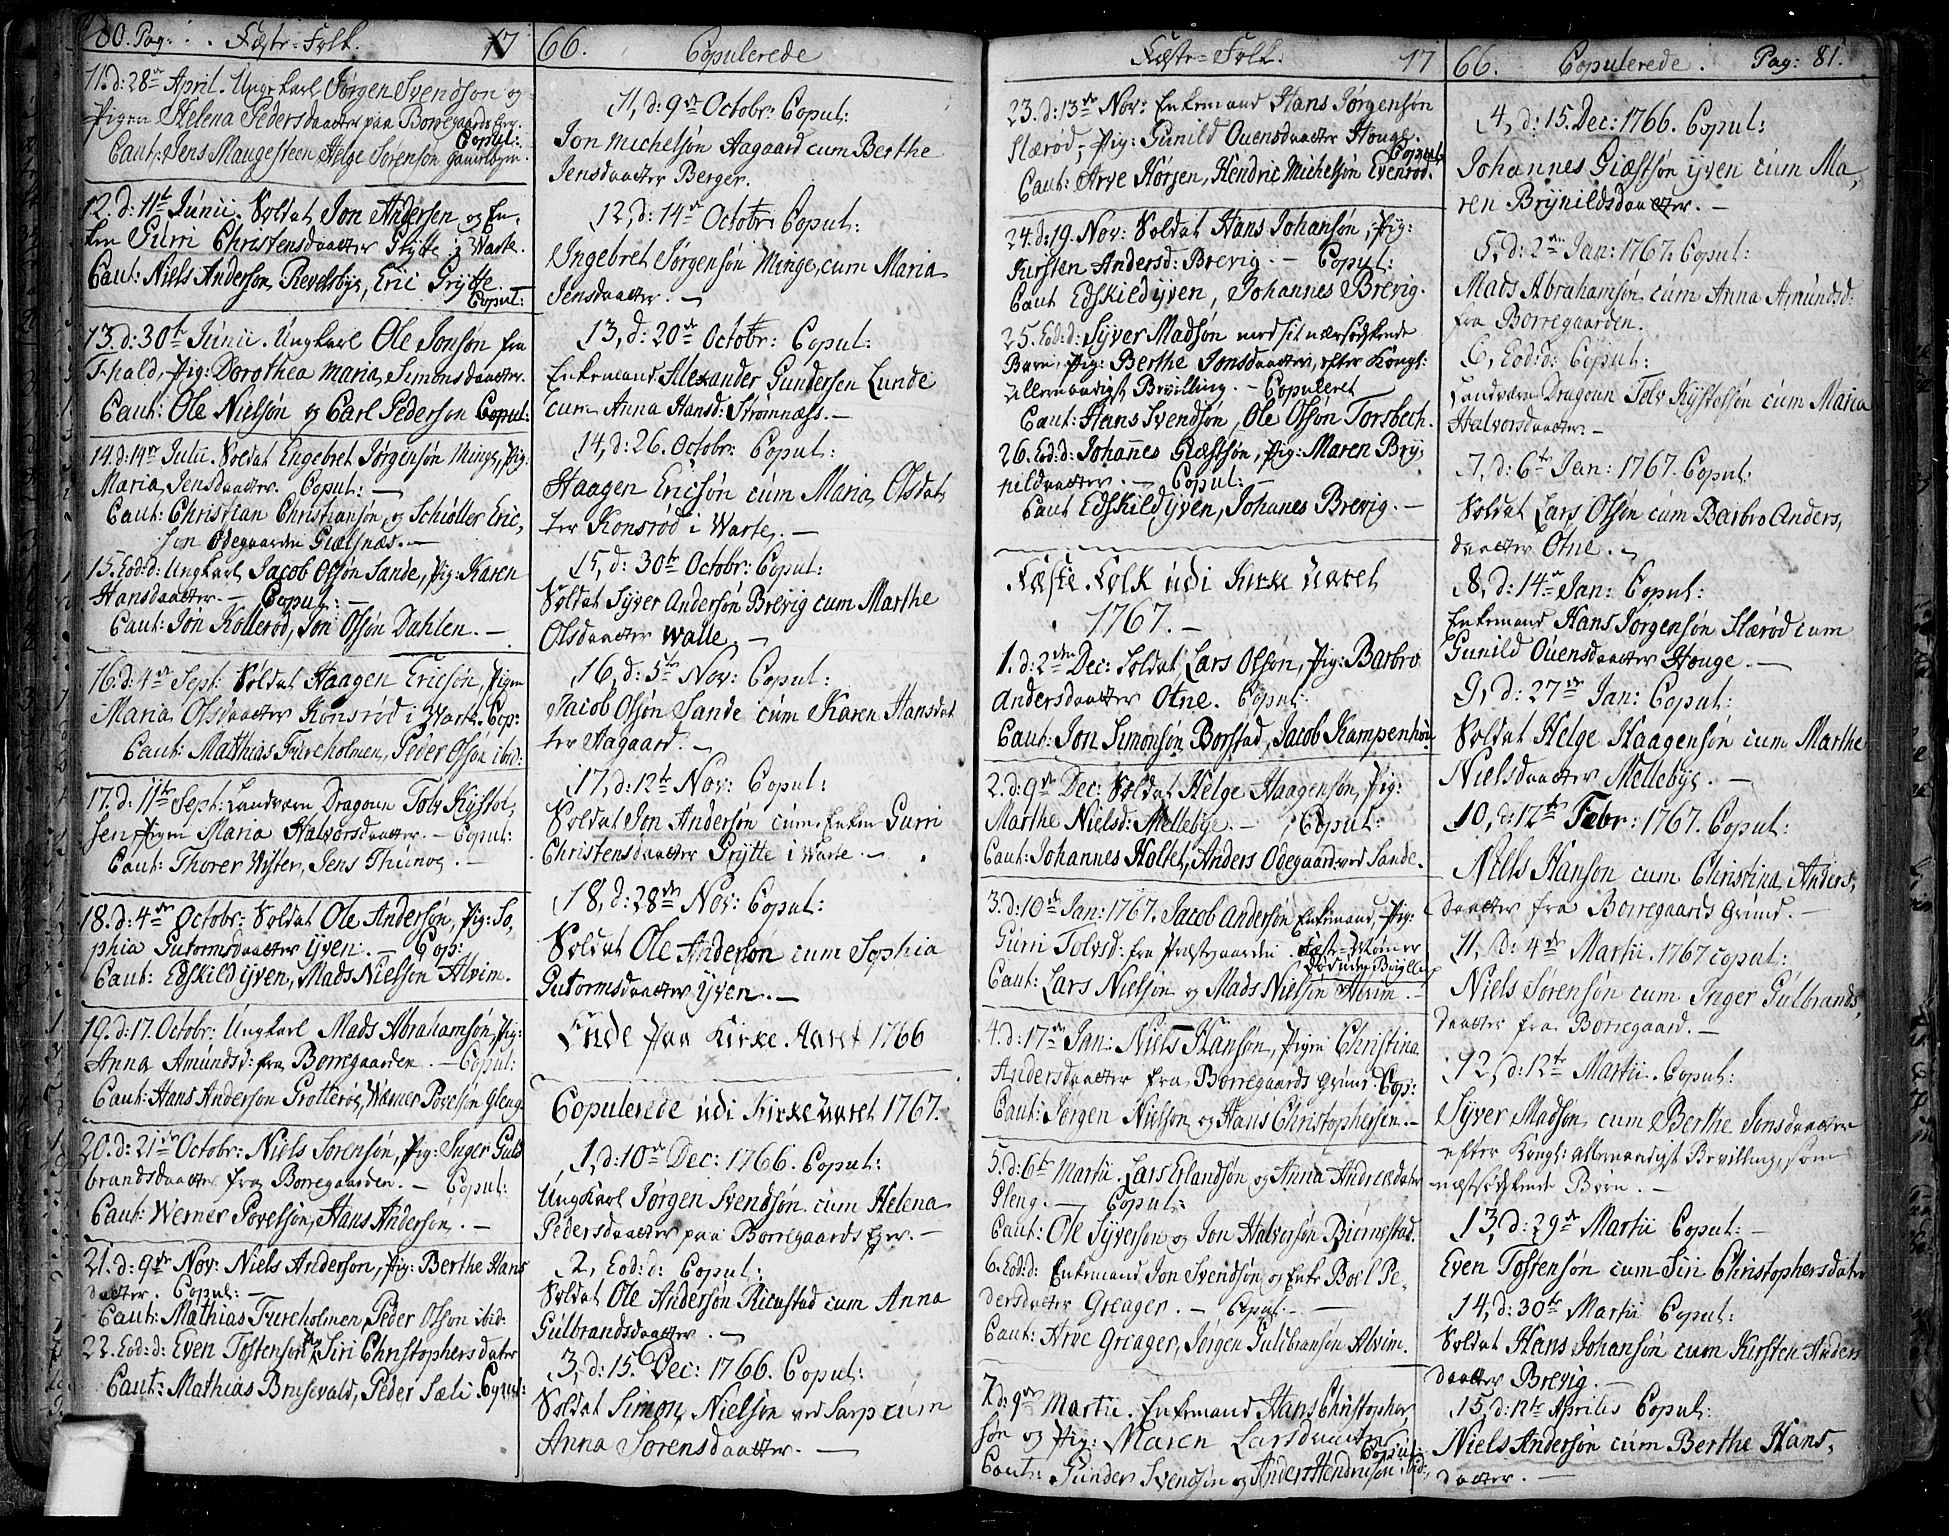 80. Pag: Fæste-Folk. 17
11. d: 28de April. Ungkarl Jørgen Svendsøn og
Pigen Helena Pedersdaatter paa Borregaards Eger.
Copul:
Caut: Jens Maugesteen Helge Sørensøn
12. d: 11te Junii. Soldat Jon Andersen og En-
ken Gurri Christensdaatter Grytte i Warte.
Caut: Niels Anderson Revelsbye, Eric Grytte.
Copul:
13. d: 30te Junii. Ungkarl Ole Jonsøn fra
Fhald, Pig: Dorothea Maria Simonsdaatter.
Caut: Ole Nielsøn og Carl Pederson Copul:
14. d: 14de Julii. Soldat Engebret Jørgensøn Minge, Pig:
Maria Jensdaatter. Copul: —
Caut: Christian Christiansøn, og Schiøller Eric,
søn Ødegaarden Giælsnæs. —
15. Eod: d: Ungkarl Jacob Olsøn Sande, Pig: Karen
Hansdaatter. — Copul: —
Caut: Jon Kollerød, Jon Olsøn Dahlen. —
16. d: 4de Sept: Soldat Haagen Ericsøn, Pigen
Maria Olsdaatter Konsrød i Warte. Cop:
Caut: Mathias Fureholmen, Peder Olsøn ibid:
17. d: 11te Sept: Landværn Dragoun Tolv Kystol,
sen Pigen Maria Halvorsdaatter. — Copul:
Caut: Thorer Wister, Jens Thunoe. —
18. d: 4de Octobr: Soldat Ole Andersøn, Pig: So,
phia Gutormsdaatter Yven. — Cop:
Caut: Edskild Yven, Mads Nielsøn Alvim.
19. d: 17. Octobr: Ungkarl Mads Abrahamsøn, Pig:
Anna Amundsd: fra Borregaarden. — Copul:
Caut: Hans Anderson Grotterøe, Werner Povelsøn Gleng
20. d: 21de Octobr: Niels Sørensøn, Pig: Inger Guld
brandsdaatter fra Borregaarden. — Copul:
Caut: Werner Povelsøn, Hans Andersøn. —
21. d: 9de Nov: Niels Anderson, Pig: Berthe Hans
daatter. Copul: —
Caut: Mathias Fureholmen, Peder Olson ibid:
22. Eod: d: Even Tostenson Siri Christophersdater
Caut: Mathias Brusevald, Peder Sæli Copul:
66. Copulerede
11, d: 9de Octobr: Copul:
Jon Michelsøn Aagaard cum Berthe
Jensdaatter Berger.
12, d: 14de Octobr: Copul:
Ingebret Jørgensøn Minge, cum Maria
Jensdaatter. —
13, d: 20de Octobr: Copul:
Enkemand Alexander Gundersen Lunde
cum Anna Hansd: Strømnæss. —
14, d: 26. Octobr: Copul:
Haagen Ericsøn cum Maria Olsdat
ter Konsrød i Warte. —
15, d: 30te Octobr: Copul:
Soldat Syver Andersøn Brevig cum Marthe
Olsdaatter Walle. —
16, d: 5te Nov: Copul:
Jacob Olsøn Sande cum Karen Hansdat
ter Aagaard. —
17, d: 12te Nov: Copul:
Soldat Jon Andersøn cum Enken Gurri
Christensdaatter Grytte i Warte. —
18, d: 28de Nov: Copul:
Soldat Ole Andersøn cum Sophia
Gutormsdaatter Yven. —
Ende paa Kirke Aaret 1766
Copulerede udi Kirke Aaret 1767.
1, d: 10de Dec: 1766. Copul:
Ungkarl Jørgen Svendsøn cum Helena
Pedersdaatter paa Borregaards Eger. —
2, Eod: d: Copul:
Soldat Ole Andersøn Rierstad cum Anna
Gulbrandsdaatter. —
3, d: 15. Dec: 1766. Copul:
Soldat Simon Nielsøn ved Sarp cum
Anna Sørensdaatter. —
Fæste-Folk. 17
23. d: 13de Nov: Enkemand Hans Jørgensøn
Slærød, Pig: Gunild Ovensdaatter Houge.
Copul:
Caut: Arve Hørsen, Hendric Michelsøn Evenrød.
24. d: 19. Nov: Soldat Hans Johansøn, Pig:
Kirsten Andersd: Brevig. — Copul:
Caut Edskild Yven, Johannes Brevig.
25. Eod: d: Syver Madsøn med sit næstsødskende
Barn, Pig: Berthe Jonsdaatter, efter Kongl:
allernaadigst Bevilling. — Copuleret
Caut: Hans Svendsøn, Ole Olsøn Torsbech.
26. Eod: d: Johannes Giæstsøn, Pig: Maren Bry,
nildsdaatter. — Copul: —
Caut Edskild Yven, Johanes Brevig. —
Fæste Folk udi Kirke Aaret
1767. —
1. d: 2den Dec: Soldat Lars Olsøn, Pig: Barbro
Andersdaatter Otne. Copul:
Caut: Jon Simonsøn Borstad, Jacob Kampenhøi
2. d: 9de Dec: Soldat Helge Haagensøn, Pig:
Marthe Nielsd: Mellebye. — Copul:
Caut: Johannes Holtet, Anders Ødegaard ved Sande.
3. d: 10de Jan: 1767. Jacob Andersøn Enkemand, Pig:
Gurri Tolvsd: fra Præstgaarden. Fæste-Møen er
død uden Bryllup
Caut: Lars Nielsøn og Mads Nielsen Alvim. —
4. d: 17de Jan: Niels Hansøn, Pigen Christina
Andersdaatter fra Borregaards Grund. Cop:
Caut: Jørgen Nielsøn og Hans Christophersen. —
5. d: 6te Martii. Lars Erlandsøn og Anna Andreædater
Gleng. — Copul:
Caut: Ole Syversøn og Jon Halvorsøn Biørnestad.
6. Eod: d: Enkemand Jon Svendsøn og Enke Boel Pe-
dersdaatter Greager. — Copul. —
Caut: Arve Greager, Jørgen Guldbransøn Alvim.
7. d: 9de Martii. Enkemand Hans Christopher,
søn og Pig: Maren Larsdaatter
Copul:
Caut: Gunder Svendsøn og Anders Hendricsøn ibid:
66. Copulerede. Pag: 81.
4, d: 15. Dec: 1766. Copul:
Johannes Giæstsøn Yven cum Ma,
ren Brynildsdaatter. —
5, d: 2den Jan: 1767. Copul:
Mads Abrahamsøn cum Anna Amundsd:
fra Borregaarden.
6, Eod: d: Copul:
Landværn Dragoun Tolv Kystolsøn cum Maria
Halvorsdaatter —
7, d: 6te Jan: 1767. Copul:
Soldat Lars Olsøn cum Barbro Anders,
daatter Otne. —
8, d: 14de Jan: Copul:
Enkemand Hans Jørgensøn Slærød cum
Gunild Ovensdaatter Houge. —
9, d: 27de Jan: Copul:
Soldat Helge Haagensøn cum Marthe
Nielsdaatter Mellebye. —
10, d: 12te Febr: 1767. Copul:
Niels Hanson cum Christina Anders,
daatter fra Borregaards Grund. —
11, d: 4de Martii. 1767 Copul:
Niels Sørensøn cum Inger Gulbrands,
daatter fra Borregaard. —
12, d: 12te Martii. Copul:
Syver Madsøn cum Berthe Jonsdaatter
efter Kongl: allernaadigst Bevilling, som
næstsødskende Børn. —
13, d: 29de Martii Copul: —
Even Tostensøn cum Siri Christophersdater
14, d: 30te Martii Copul:
Soldat Hans Johansøn cum Kirsten Anders
daatter Brevig. —
15, d: 12te Aprilis Copul:
Niels Andersøn cum Berthe Hans,
daatter. —